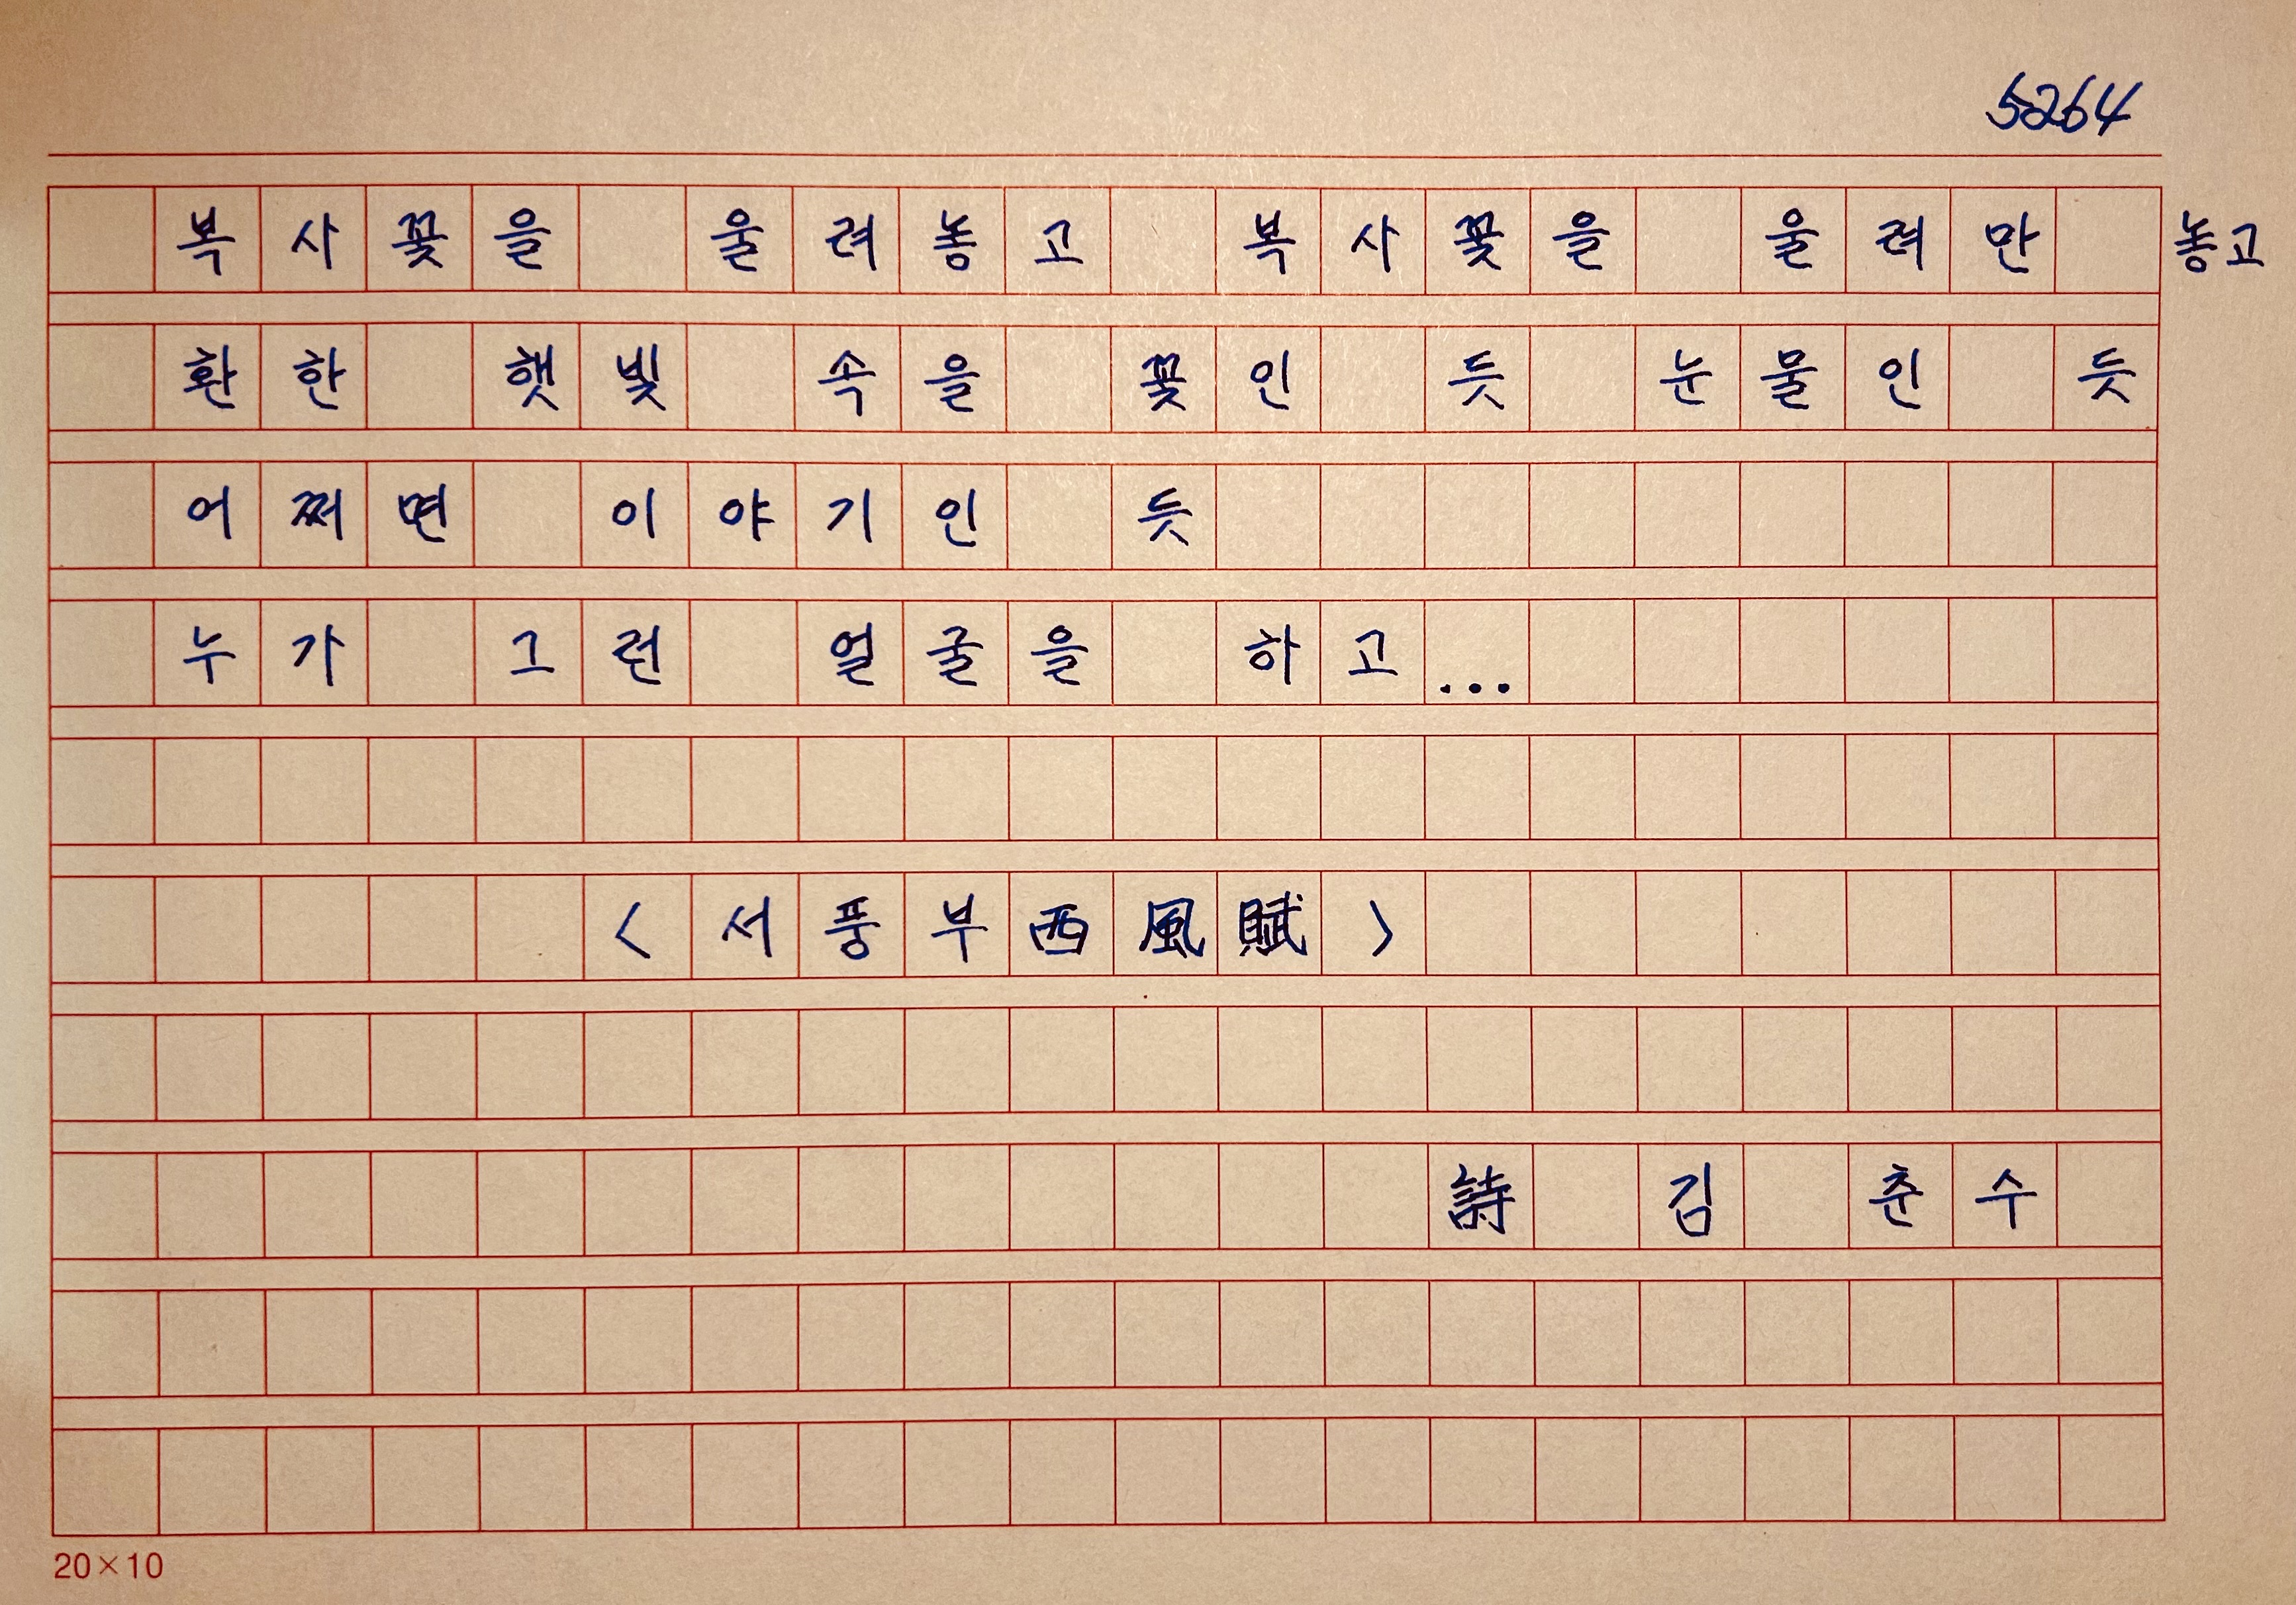 5264
복사꽃을 울려놓고 복사꽃을 울려만 놓고
환한 햇빛 속을 꽃인 듯 눈물인 듯
어쩌면 이야기인 듯
누가 그런 얼굴을 하고...
<서풍부西風賦>
詩 김 춘수
20×10